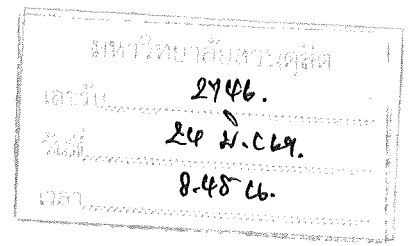 มหาวิทยาลัยสวนดุสิต
เลขรับ 2746.
วันที่ 24 มิ.ย.
เวลา 8.45 น.